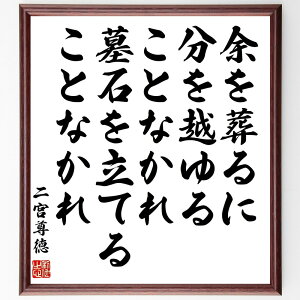 余を葬るに
分を越ゆる
ことなかれ
墓石を立てる
ことなかれ
二宮尊徳